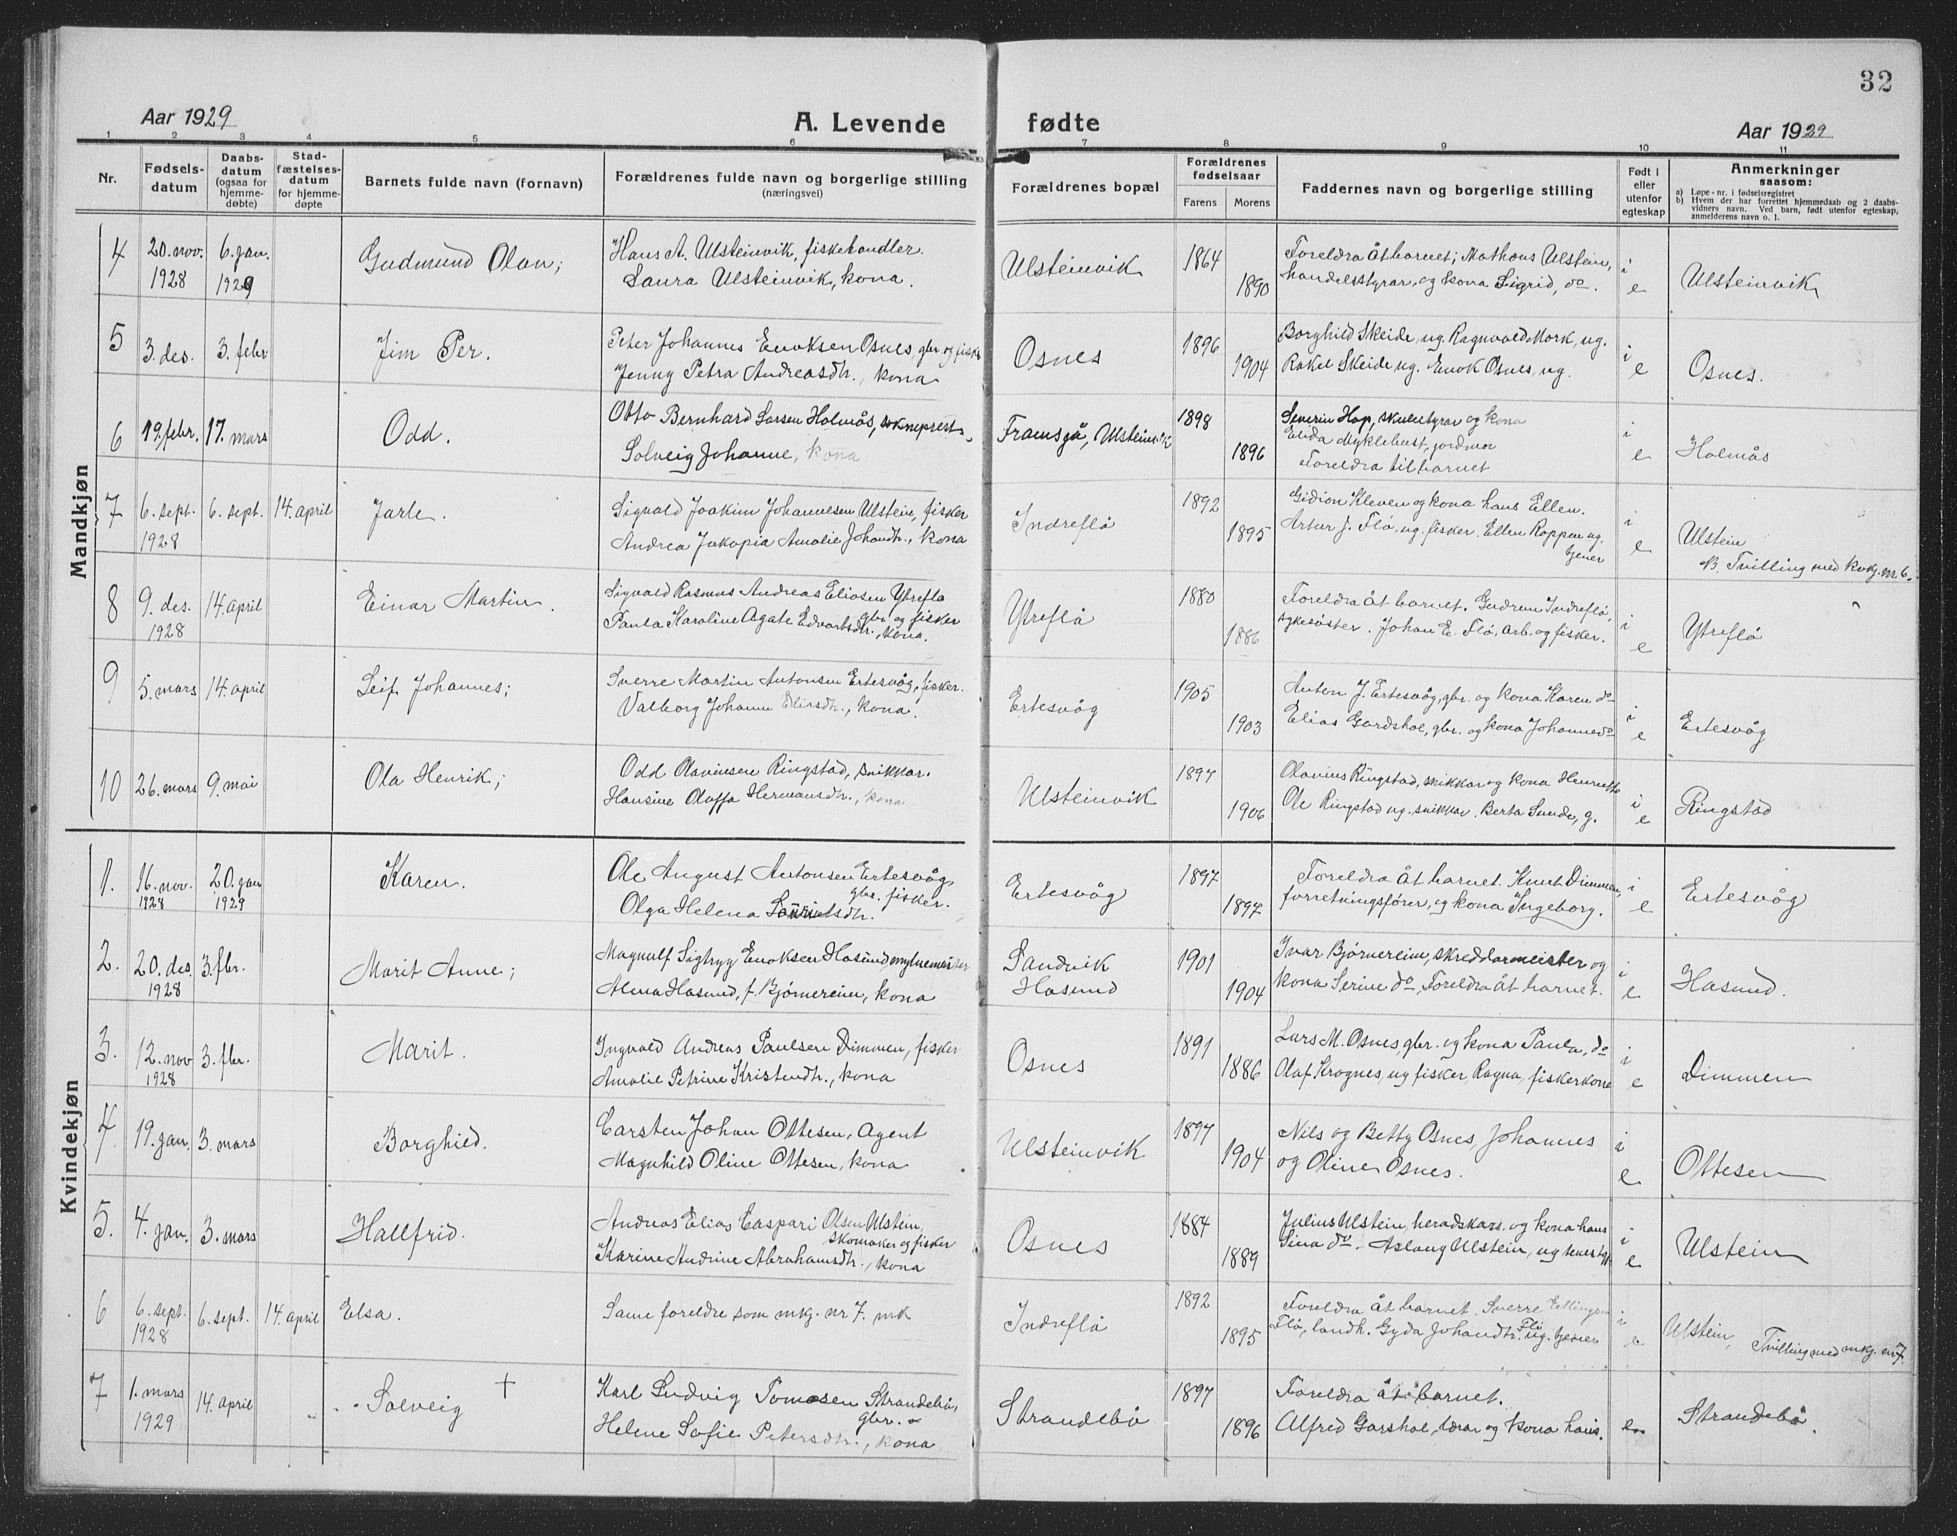 32
Aar 1929
A. Levende
fødte
Aar 1929
1 2 3 4 5 6 7 8 9 10 11
Nr.
Fødsels-
datum
Daabs-
datum
(ogsaa for
hjemme-
døbte)
Stad-
fæstelses-
datum
for hjemme-
døpte
Barnets fulde navn (fornavn)
Forældrenes fulde navn og borgerlige stilling
(næringsvei)
Forældrenes bopæl
Forældrenes
fødselsaar
Farens Morens
Faddernes navn og borgerlige stilling
Født i
eller
utenfor
egteskap
Anmerkninger
saasom:
a) Løpe-nr. i fødselsregistret
b) Hvem der har forrettet hjemmedaab og 2 daabs-
vidners navn. Ved barn, født utenfor egteskap,
anmelderens navn o. l.
Mandkjøn
4 20. nov. 6. jan. Gudmund Olan; Hans A. Ulsteinvik, fiskehandler. Ulsteinvik 1864 Foreldra åt barnet; Mathous Ulstein, i Ulsteinvik
1928 1929 Laura Ulsteinvik, kona. 1890 handelsstyrar, og kona Sigrid, do. e
5 3. des. 3. febr Jim Per. Peter Johannes Enoksen Osnes gbr og fisk Osnes 1896 Borghild Skeide, ug. Ragnvald Mork, ug. i Osnes.
Jenny Petra Andreasdr., kona 1904 Rakel Skeide ug. Enok Osnes, ug. e
6 19. febr. 17. mars Odd. Otto Bernhard Larsen Holmås, sokneprest Framsgå, Ulsteinvik 1898 Severin Hop, skulestyrar og kona i Holmås
Solveig Johanne, kona 1896 Elida Myklebust, jordmor e
Foreldra til barnet
7 6. sept. 6. sept. 14. april Jarle. Sigvald Joakim Johannesen Ulstein, fisker Indreflø 1892 Gidion Kleven og kona hans Ellen. i Ulstein
1928 Andrea Jakopia Amalie Johandr., kona 1895 Artur J. Flø, ug. fisker. Ellen Roppen ug. e B. Tvilling med kvkj. nr 6.
tjener
8 9. des. 14 april Einar Martin. Sigvald Rasmus Andreas Eliasen Ytreflø Ytreflø 1880 Foreldra åt barnet. Gudrun Indreflø, i Ytreflø
gbr. og fisker
1928 Paula Karoline Agate Edvartsdr., kona. 1886 sykesøster. Johan E. Flø, arb. og fisker. e
9 5. mars 14. april Leif Johannes; Sverre Martin Antonsen Ertesvåg, fisker. Ertesvåg 1905 Anton J. Ertesvåg, gbr. og kona Karen do i Ertesvåg
Valborg Johanne Eliasdr., kona. 1903 Elias Gardshol, gbr. og kona Johanne do e
10 26. mars 9. mai Ola Henrik; Odd Olavinsen Ringstad, snikkar. Ulsteinvik 1897 Olavius Ringstad, snikkar og kona Henrette i Ringstad
Hansine Oluffa Hermansdr., kona 1906 Ole Ringstad ug. snikkar. Berta Sunde, g. e
Kvindekjøn
1. 16. nov. 20. jan Karen. Ole August Antonsen Ertesvåg, Ertesvåg 1897 Foreldra åt barnet. Knut Dimmen, i Ertesvåg
gbr. fisker.
1928 1929 Olga Helena 1897 forretningsfører, og kona Ingeborg. e
2. 20. des. 3. fbr. Marit Anne; Magnulf Sigtryg Enoksen Hasund mylnemeister Sandvik 1901 Ivar Bjørnereim, skreddarmeister og i Hasund.
1928 Alma Hasund, f. Bjørnereim, kona Hasund 1904 kona Serine do, Foreldra åt barnet. e
3. 12. nov 3. fbr. Marit. Ingvald Andreas Paulsen Dimmen, fisker Osnes 1891 Lars M. Osnes, gbr. og kona Paula, do i Dimmen
1928 Amalie Petrine Kristendr., kona 1886 Olaf Krognes, ug fisker Ragna, fiskerkone e
4 19. jan. 3. mars Borghild. Carsten Johan Ottesen, Agent Ulsteinvik 1897 Nils og Betty Osnes, Johannes i Ottesen
Magnhild Oline Ottesen, kona 1904 og Oline Osnes. e
5. 4. jan. 3. mars Hallfrid. Andreas Elias Caspari Olsen Ulstein, Osnes 1884 Julius Ulstein, heradskass. og kona hans i Ulstein
skomaker og fisker
Karine Andrine Abrahamsdr., kona 1889 Sina do. Aslaug Ulstein, ug e
6 6. sept. 6. sept. 14. april Elsa. Same foreldre som mkj. nr 7. Indreflø 1892 Foreldra åt barnet. Sverre Ellingsen i Ulstein,
1928 1895 Flø, landh. Gyda Johandtr. Flø ug. tjener e Tvilling med mkj. nr 7.
7 1. mars 14. april Solveig † Karl Ludvig Tomasen Strandebø, Strandebø 1897 Foreldra åt barnet. e Strandebø.
gbr.
1929 Helene Sofie Petersdr., kona 1896 Alfred Garshol, lærar og kona hans.